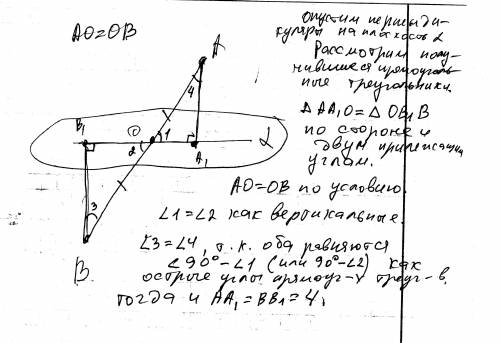 AO=OB
A
4
B₁
O
1
2
A₁
α
3
B.
опустим перпенди-
куляры на плоскость α
Рассмотрим полу-
чившиеся прямоуголь-
ные треугольники.
△ AA₁O = △ OB₁B
по стороне и
двум прилежащим
углам.
AO=OB по условию.
∠1=∠2 как вертикальные.
∠3=∠4, т.к. оба равняются
∠90°-∠1 (или 90°-∠2) как
острые углы прямоуг-х треуг-в.
тогда и AA₁=BB₁=4.